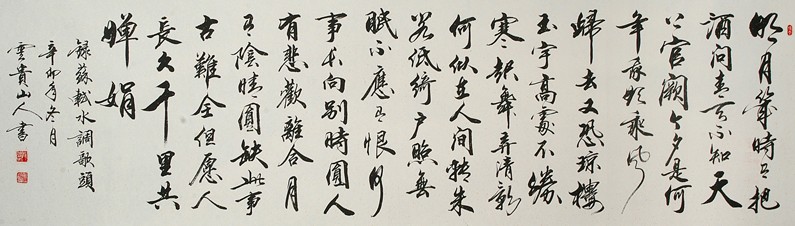 明月幾時有把
酒問青天不知天
上宮闕今夕是何
年我欲乘風
歸去又恐瓊樓
玉宇高處不勝
寒起舞弄清影
何似在人間轉朱
閣低綺戶照無
眠不應有恨何
事長向別時圓人
有悲歡離合月
有陰晴圓缺此事
古難全但愿人
長久千里共
嬋娟
錄蘇軾水調歌頭
辛卯年冬月
雲貴山人書